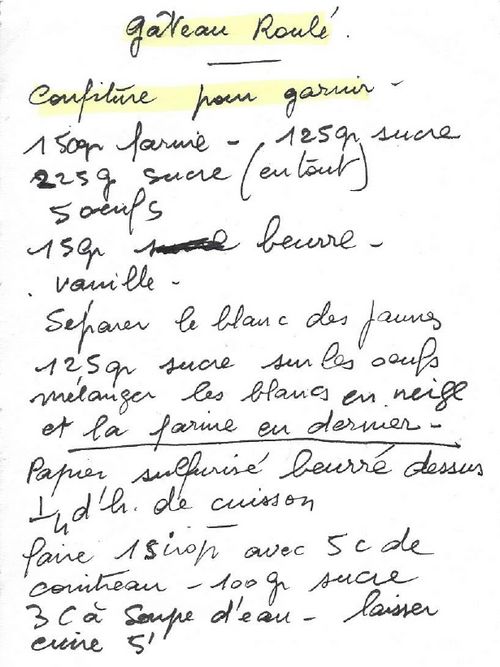 Gâteau Roulé.
Confiture pour garnir -
150gr farine - 125gr sucre
225g sucre (en tout)
5 oeufs
15gr beurre -
. vanille -
Séparer le blanc des jaunes
125gr sucre sur les oeufs
mélanger les blancs en neige
et la farine en dernier -
Papier sulfurisé beurré dessus
1/4 d'h. de cuisson
faire 1 Sirop avec 5 c de
cointreau - 100gr sucre
3 C à Soupe d'eau - laisser
cuire 5'